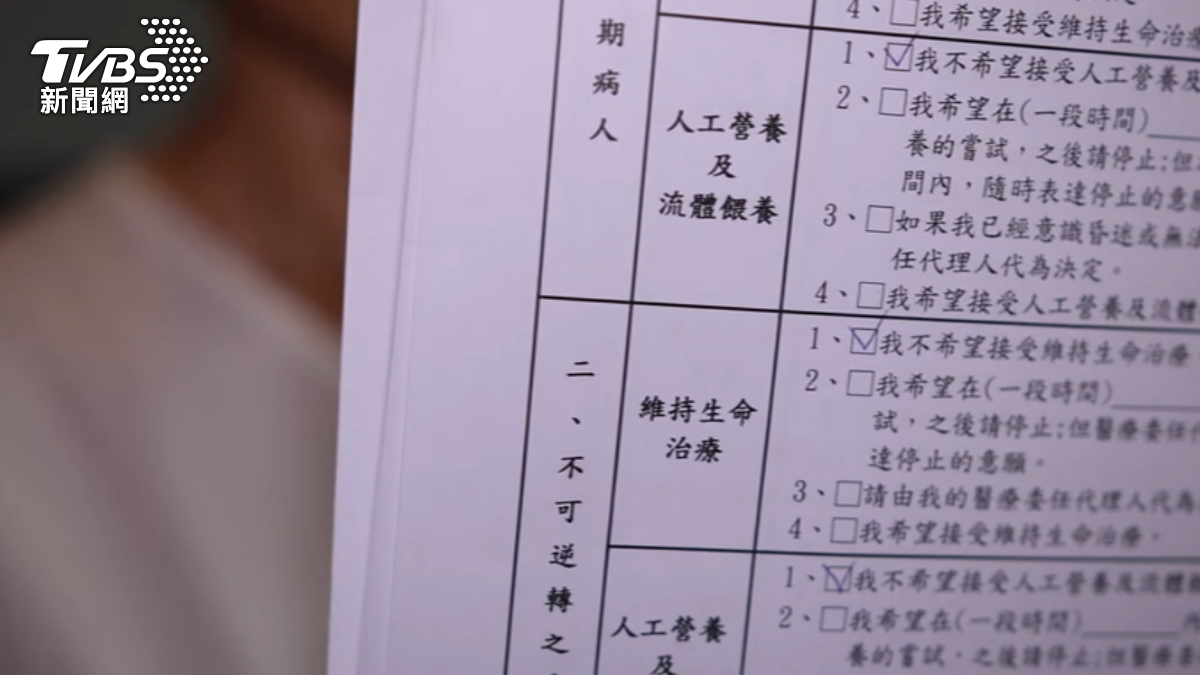 TVBS
新聞網
期
病
人
4、□我希望接受維持生命治療
人工營養
及
流體餵養
1、☑我不希望接受人工營養及
2、□我希望在(一段時間)______
養的嘗試，之後請停止;但
間內，隨時表達停止的意願
3、□如果我已經意識昏迷或無法
任代理人代為決定。
4、□我希望接受人工營養及流體
二
、
不
可
逆
轉
之
維持生命
治療
1、☑我不希望接受維持生命治療。
2、□我希望在(一段時間)______
試，之後請停止;但醫療委任代
達停止的意願。
3、□請由我的醫療委任代理人代為
4、□我希望接受維持生命治療。
人工營養
及
1、☑我不希望接受人工營養及流體餵
2、□我希望在(一段時間)______內
養的嘗試，之後請停止;但醫療委